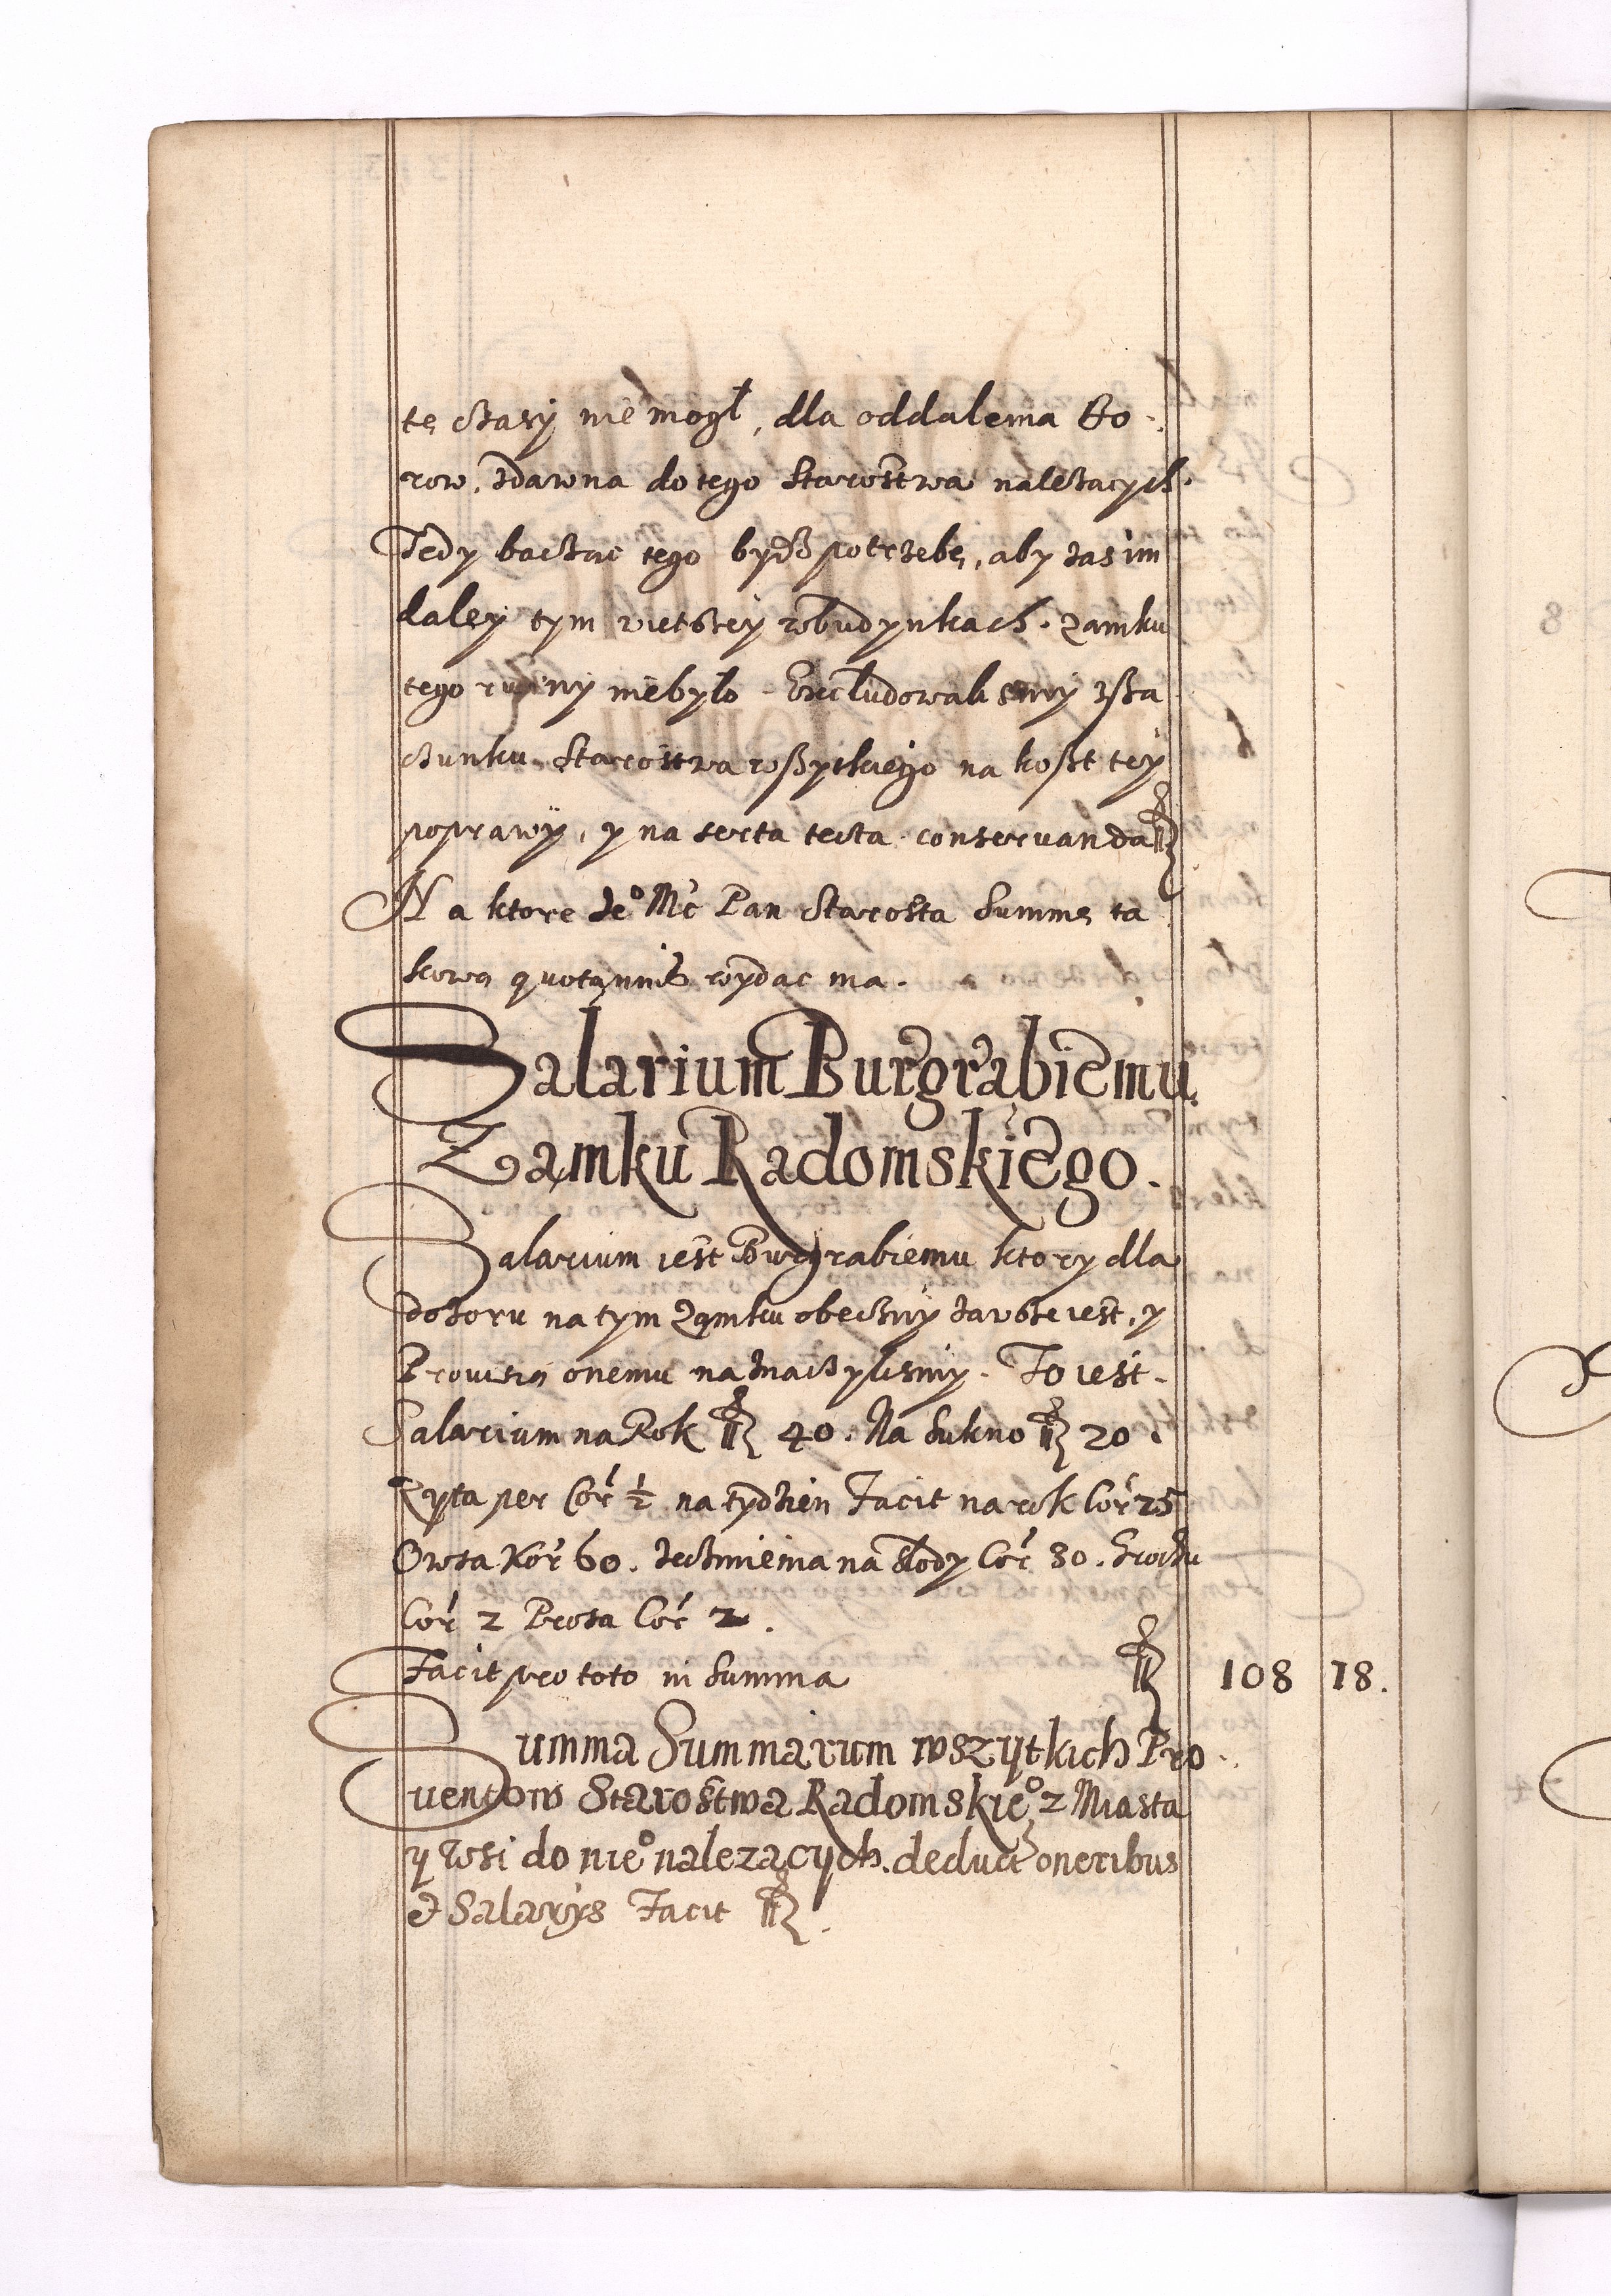 te czasy nie mogł, dla oddalenia Bo-
row, zdawna do tego Starostwa należacych.
Tedy bacząc tego bydz potrzebę, aby zas im
daley tym wietszey w budynkach Zamku
tego ruiny nie było. Excludowalismy z sza
cunku Starostwa wszytkiego na koszt tey
poprawy, y na serta tecta conservanda fl
Na ktore Je° Mć Pan Starosta Summę ta
kową quotannis wydac ma.
Salarium Burgrabiemu
Zamku Radomskiego.
Salarium iest Burgrabiemu ktory dla
dozoru na tym Zamku obecny zawsze iest, y
Prowisią onemu naznaczylismy. To iest.
Salarium na Rok fl 40. Na Sukno fl 20.
Zyta per Cor ½ na tydzien Facit na rok Cor 25
Owsa Kor 60. Jęczmienia na Slody Cor 30. Grochu
Cor 2 Prosa Cor 2.
Facit pro toto in Summa fl 108 18.
Summa Summarum wszytkich Pro-
uentow Starostwa Radomskie° z Miasta
y Wsi do nie° nalezących. deduct oneribus
et Salarys Facit fl.